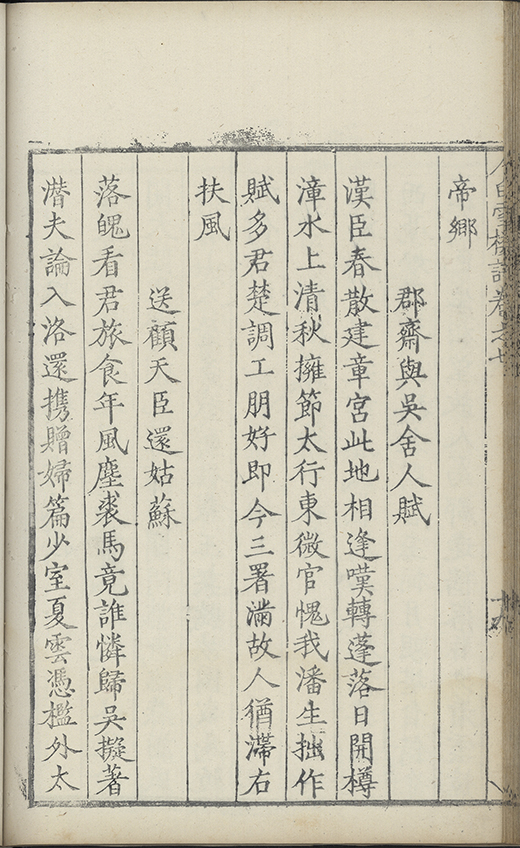 白雲樓詩卷之七
帝鄉
郡齋與吳舍人賦
漢臣春散建章宮此地相逢嘆轉蓬落日開樽
漳水上清秋擁節太行東微官愧我潘生拙作
賦多君楚調工朋好即今三署滿故人猶滯右
扶風
送顧天臣還姑蘇
落魄看君旅食年風塵裘馬竟誰憐歸吳擬著
潛夫論入洛還携贈婦篇少室夏雲憑檻外太